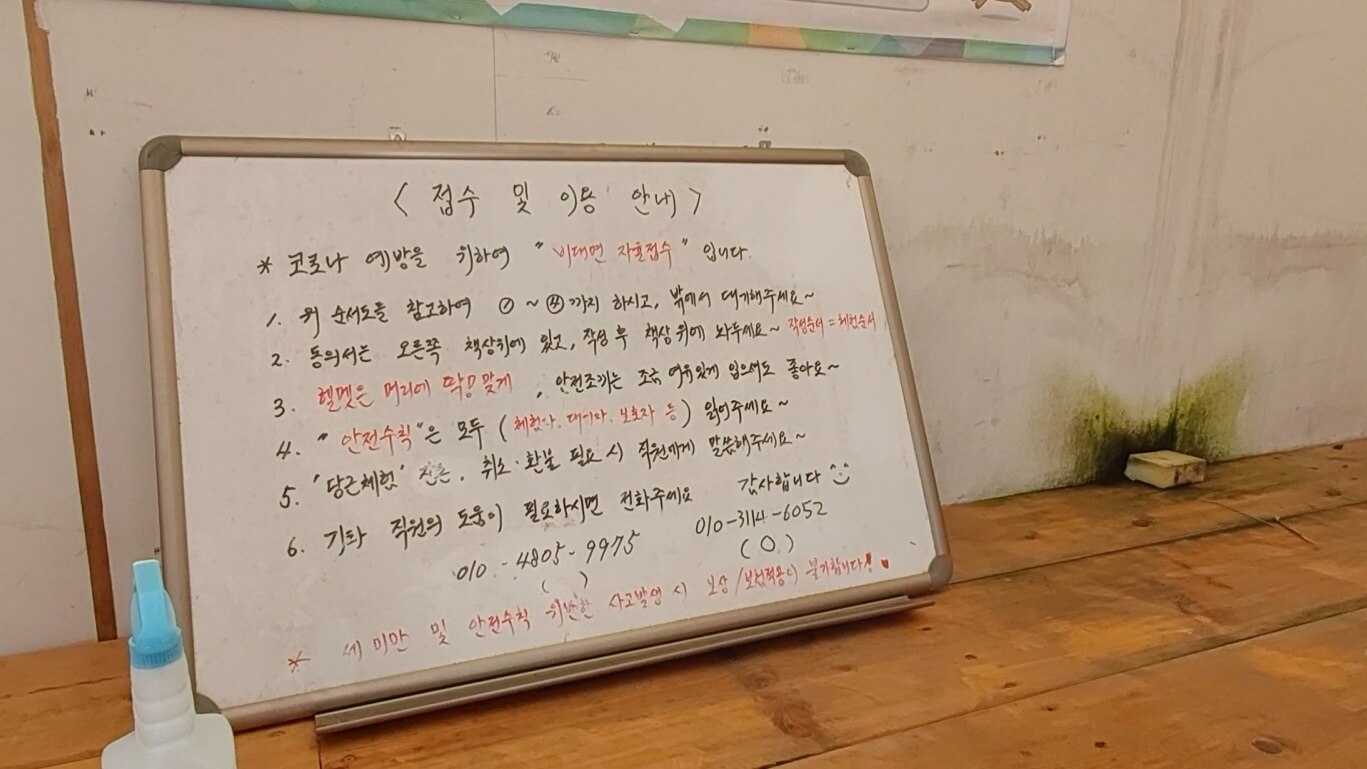 < 접수 및 이용 안내 >
* 코로나 예방을 위하여 "비대면 자율접수" 입니다.
1. 위 순서도를 참고하여 ①~④까지 하시고, 밖에서 대기해주세요~
2. 동의서는 오른쪽 책상위에 있고, 작성 후 책상 위에 놔두세요~ 작성순서 = 체험순서
3. 헬멧은 머리에 딱! 맞게, 안전조끼는 조금 여유있게 입으셔도 좋아요~
4. "안전수칙"은 모두 (체험자, 대기자, 보호자 등) 읽어주세요~
5. '당근체험' 취소·환불 필요 시 직원에게 말씀해주세요~
6. 기타 직원의 도움이 필요하시면 전화주세요 감사합니다
010-4805-9975 010-3114-6052
( ) (O)
* 세 미만 및 안전수칙 위반한 사고발생 시 보상/보험적용이 불가합니다!